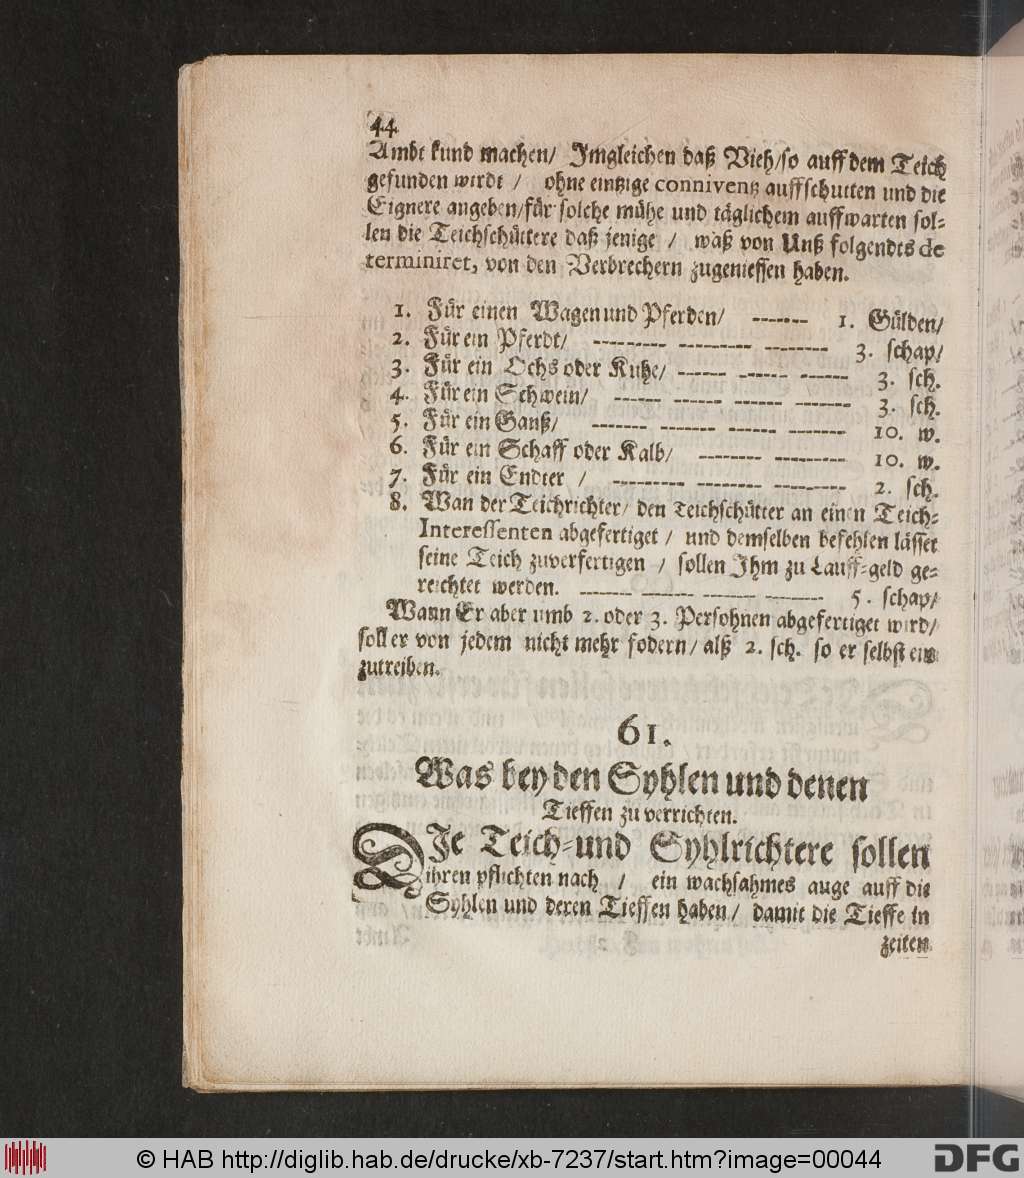 44
Ambt kund machen/ Imgleichen daß Vieh/so auff dem Teich
gefunden wirdt / ohne eintzige conniventz auffschutten und die
Eignere angeben/für solche mühe und täglichem auffwarten sol-
len die Teichschüttere daß jenige / waß von Unß folgendts de
terminiret, von den Verbrechern zugeniessen haben.
1. Für einen Wagen und Pferden/ ------- 1. Gülden/
2. Für ein Pferdt/ --------- --------- -------- 3. schap/
3. Für ein Ochs oder Kuhe/ ------ ------ ------ 3. sch.
4. Für ein Schwein/ ------ ------ ------ ------- 3. sch.
5. Für ein Ganß/ ------- ------- ------ ------- 10. w.
6. Für ein Schaff oder Kalb/ -------- --------- 10. w.
7. Für ein Endter / --------- -------- --------- 2. sch.
8. Wan der Teichrichter/ den Teichschütter an einen Teich-
Interessenten abgefertiget / und demselben befehlen lässet
seine Teich zuverfertigen / sollen Ihm zu Lauff-geld ge-
reichtet werden. ------- ------- ------- -------- 5. schap/
Wann Er aber umb 2. oder 3. Persohnen abgefertiget wird/
soll er von jedem nicht mehr fodern/ alß 2. sch. so er selbst ein
zutreiben.
61.
Was bey den Syhlen und denen
Tieffen zu verrichten.
DIe Teich-und Syhlrichtere sollen
ihren pflichten nach / ein wachsahmes auge auff die
Syhlen und deren Tieffen haben/ damit die Tieffe in
zeiten
© HAB http://diglib.hab.de/drucke/xb-7237/start.htm?image=00044
DFG